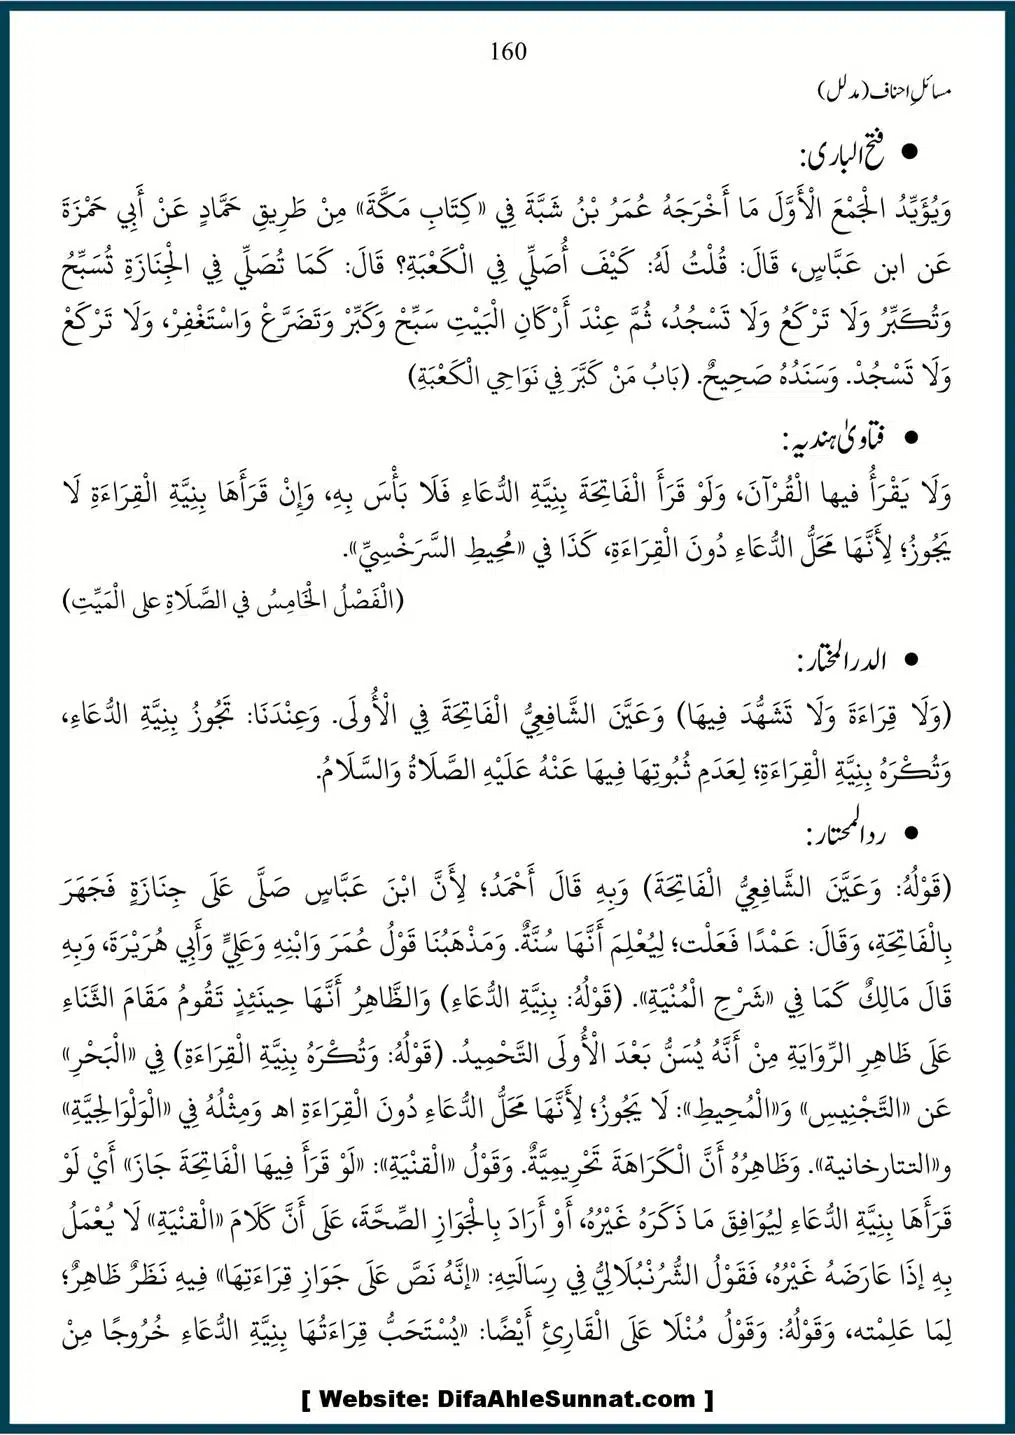 160
مسائلِ احناف (مدلل)
● فتح الباری:
وَيُؤَيِّدُ الْجَمْعَ الْأَوَّلَ مَا أَخْرَجَهُ عُمَرُ بْنُ شَبَّةَ فِي «كِتَابِ مَكَّةَ» مِنْ طَرِيقِ حَمَّادٍ عَنْ أَبِي حَمْزَةَ
عَن ابن عَبَّاسٍ، قَالَ: قُلْتُ لَهُ: كَيْفَ أُصَلِّي فِي الْكَعْبَةِ؟ قَالَ: كَمَا تُصَلِّي فِي الْجِنَازَةِ تُسَبِّحُ
وَتُكَبِّرُ وَلَا تَرْكَعُ وَلَا تَسْجُدُ، ثُمَّ عِنْدَ أَرْكَانِ الْبَيْتِ سَبِّحْ وَكَبِّرْ وَتَضَرَّعْ وَاسْتَغْفِرْ، وَلَا تَرْكَعْ
وَلَا تَسْجُدْ. وَسَنَدُهُ صَحِيحٌ. (بَابُ مَنْ كَبَّرَ فِي نَوَاحِي الْكَعْبَةِ)
● فتاویٰ ہندیہ:
وَلَا يَقْرَأُ فيها الْقُرْآنَ، وَلَوْ قَرَأَ الْفَاتِحَةَ بِنِيَّةِ الدُّعَاءِ فَلَا بَأْسَ بِهِ، وَإِنْ قَرَأَهَا بِنِيَّةِ الْقِرَاءَةِ لَا
يَجُوزُ؛ لِأَنَّهَا مَحَلُّ الدُّعَاءِ دُونَ الْقِرَاءَةِ، كَذَا في «مُحِيطِ السَّرَخْسِيِّ».
(الْفَصْلُ الْخَامِسُ في الصَّلَاةِ على الْمَيِّتِ)
● الدر المختار:
(وَلَا قِرَاءَةَ وَلَا تَشَهُّدَ فِيهَا) وَعَيَّنَ الشَّافِعِيُّ الْفَاتِحَةَ فِي الْأُولَى. وَعِنْدَنَا: تَجُوزُ بِنِيَّةِ الدُّعَاءِ،
وَتُكْرَهُ بِنِيَّةِ الْقِرَاءَةِ؛ لِعَدَمِ ثُبُوتِهَا فِيهَا عَنْهُ عَلَيْهِ الصَّلَاةُ وَالسَّلَامُ.
● رد المحتار:
(قَوْلُهُ: وَعَيَّنَ الشَّافِعِيُّ الْفَاتِحَةَ) وَبِهِ قَالَ أَحْمَدُ؛ لِأَنَّ ابْنَ عَبَّاسٍ صَلَّى عَلَى جِنَازَةٍ فَجَهَرَ
بِالْفَاتِحَةِ، وَقَالَ: عَمْدًا فَعَلْت؛ لِيُعْلِمَ أَنَّهَا سُنَّةٌ. وَمَذْهَبُنَا قَوْلُ عُمَرَ وَابْنِهِ وَعَلِيٍّ وَأَبِي هُرَيْرَةَ، وَبِهِ
قَالَ مَالِكٌ كَمَا فِي «شَرْحِ الْمُنْيَةِ». (قَوْلُهُ: بِنِيَّةِ الدُّعَاءِ) وَالظَّاهِرُ أَنَّهَا حِينَئِذٍ تَقُومُ مَقَامَ الثَّنَاءِ
عَلَى ظَاهِرِ الرِّوَايَةِ مِنْ أَنَّهُ يُسَنُّ بَعْدَ الْأُولَى التَّحْمِيدُ. (قَوْلُهُ: وَتُكْرَهُ بِنِيَّةِ الْقِرَاءَةِ) فِي «الْبَحْرِ»
عَن «التَّجْنِيسِ» وَ«الْمُحِيطِ»: لَا يَجُوزُ؛ لِأَنَّهَا مَحَلُّ الدُّعَاءِ دُونَ الْقِرَاءَةِ اهـ وَمِثْلُهُ فِي «الْوَلْوَالِجِيَّةِ»
و«التتارخانية». وَظَاهِرُهُ أَنَّ الْكَرَاهَةَ تَحْرِيمِيَّةٌ. وَقَوْلُ «الْقنْيَةِ»: «لَوْ قَرَأَ فِيهَا الْفَاتِحَةَ جَازَ» أَيْ لَوْ
قَرَأَهَا بِنِيَّةِ الدُّعَاءِ لِيُوَافِقَ مَا ذَكَرَهُ غَيْرُهُ، أَوْ أَرَادَ بِالْجَوَازِ الصِّحَّةَ، عَلَى أَنَّ كَلَامَ «الْقنْيَةِ» لَا يُعْمَلُ
بِهِ إذَا عَارَضَهُ غَيْرُهُ، فَقَوْلُ الشُّرُنْبُلَالِيُّ فِي رِسَالَتِهِ: «إنَّهُ نَصَّ عَلَى جَوَازِ قِرَاءَتِهَا» فِيهِ نَظَرٌ ظَاهِرٌ؛
لِمَا عَلِمْته، وَقَوْلُهُ: وَقَوْلُ مُنْلَا عَلَى الْقَارِئِ أَيْضًا: «يُسْتَحَبُّ قِرَاءَتُهَا بِنِيَّةِ الدُّعَاءِ خُرُوجًا مِنْ
[ Website: DifaAhleSunnat.com ]